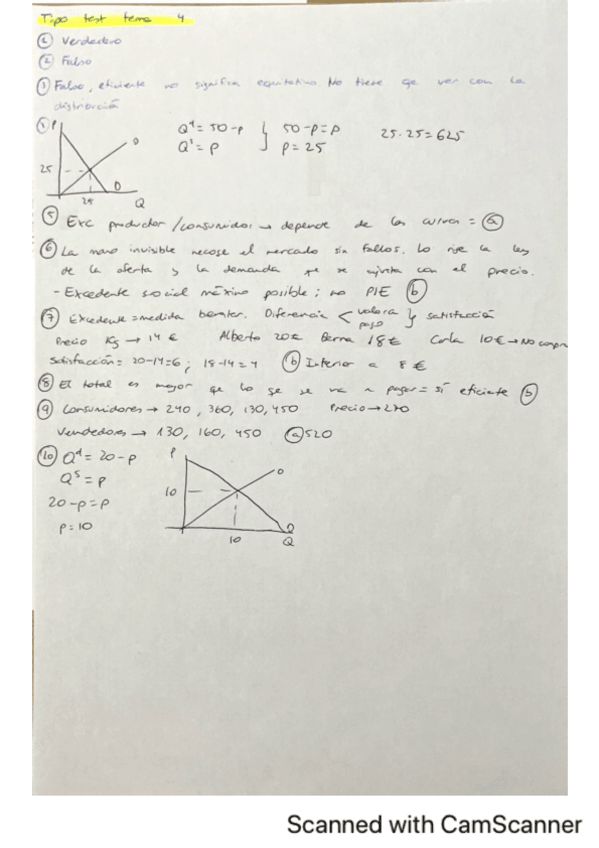 Tipo test tema 4
① Verdadero
② Falso
③ Falso, eficiente no significa equitativo No tiene que ver con la
distribución
④ P
Qd = 50-p } 50-p=p 25·25=625
Qs = p p=25
O
25
D
25 Q
⑤ Exc productor/consumidor → depende de las curvas = ⓐ
⑥ La mano invisible recoge el mercado sin fallos. Lo rige la ley
de la oferta y la demanda que se ajusta con el precio.
- Excedente social máximo posible; no PIE ⓑ
⑦ Excedente = medida bienestar. Diferencia < valora } satisfacción
pago
Precio Kg → 14 € Alberto 20€ Berna 18€ Carla 10€ → No compra
Satisfacción = 20-14=6; 18-14=4 ⓑ Inferior a 8€
⑧ El total es mayor que lo que se va a pagar = sí eficiente ⓑ
⑨ Consumidores → 240, 360, 130, 450 Precio → 270
Vendedores → 130, 160, 450 ⓐ 520
⑩ Qd = 20-p
Qs = p
20-p=p
p=10
P
O
10
10 D
Q
Scanned with CamScanner